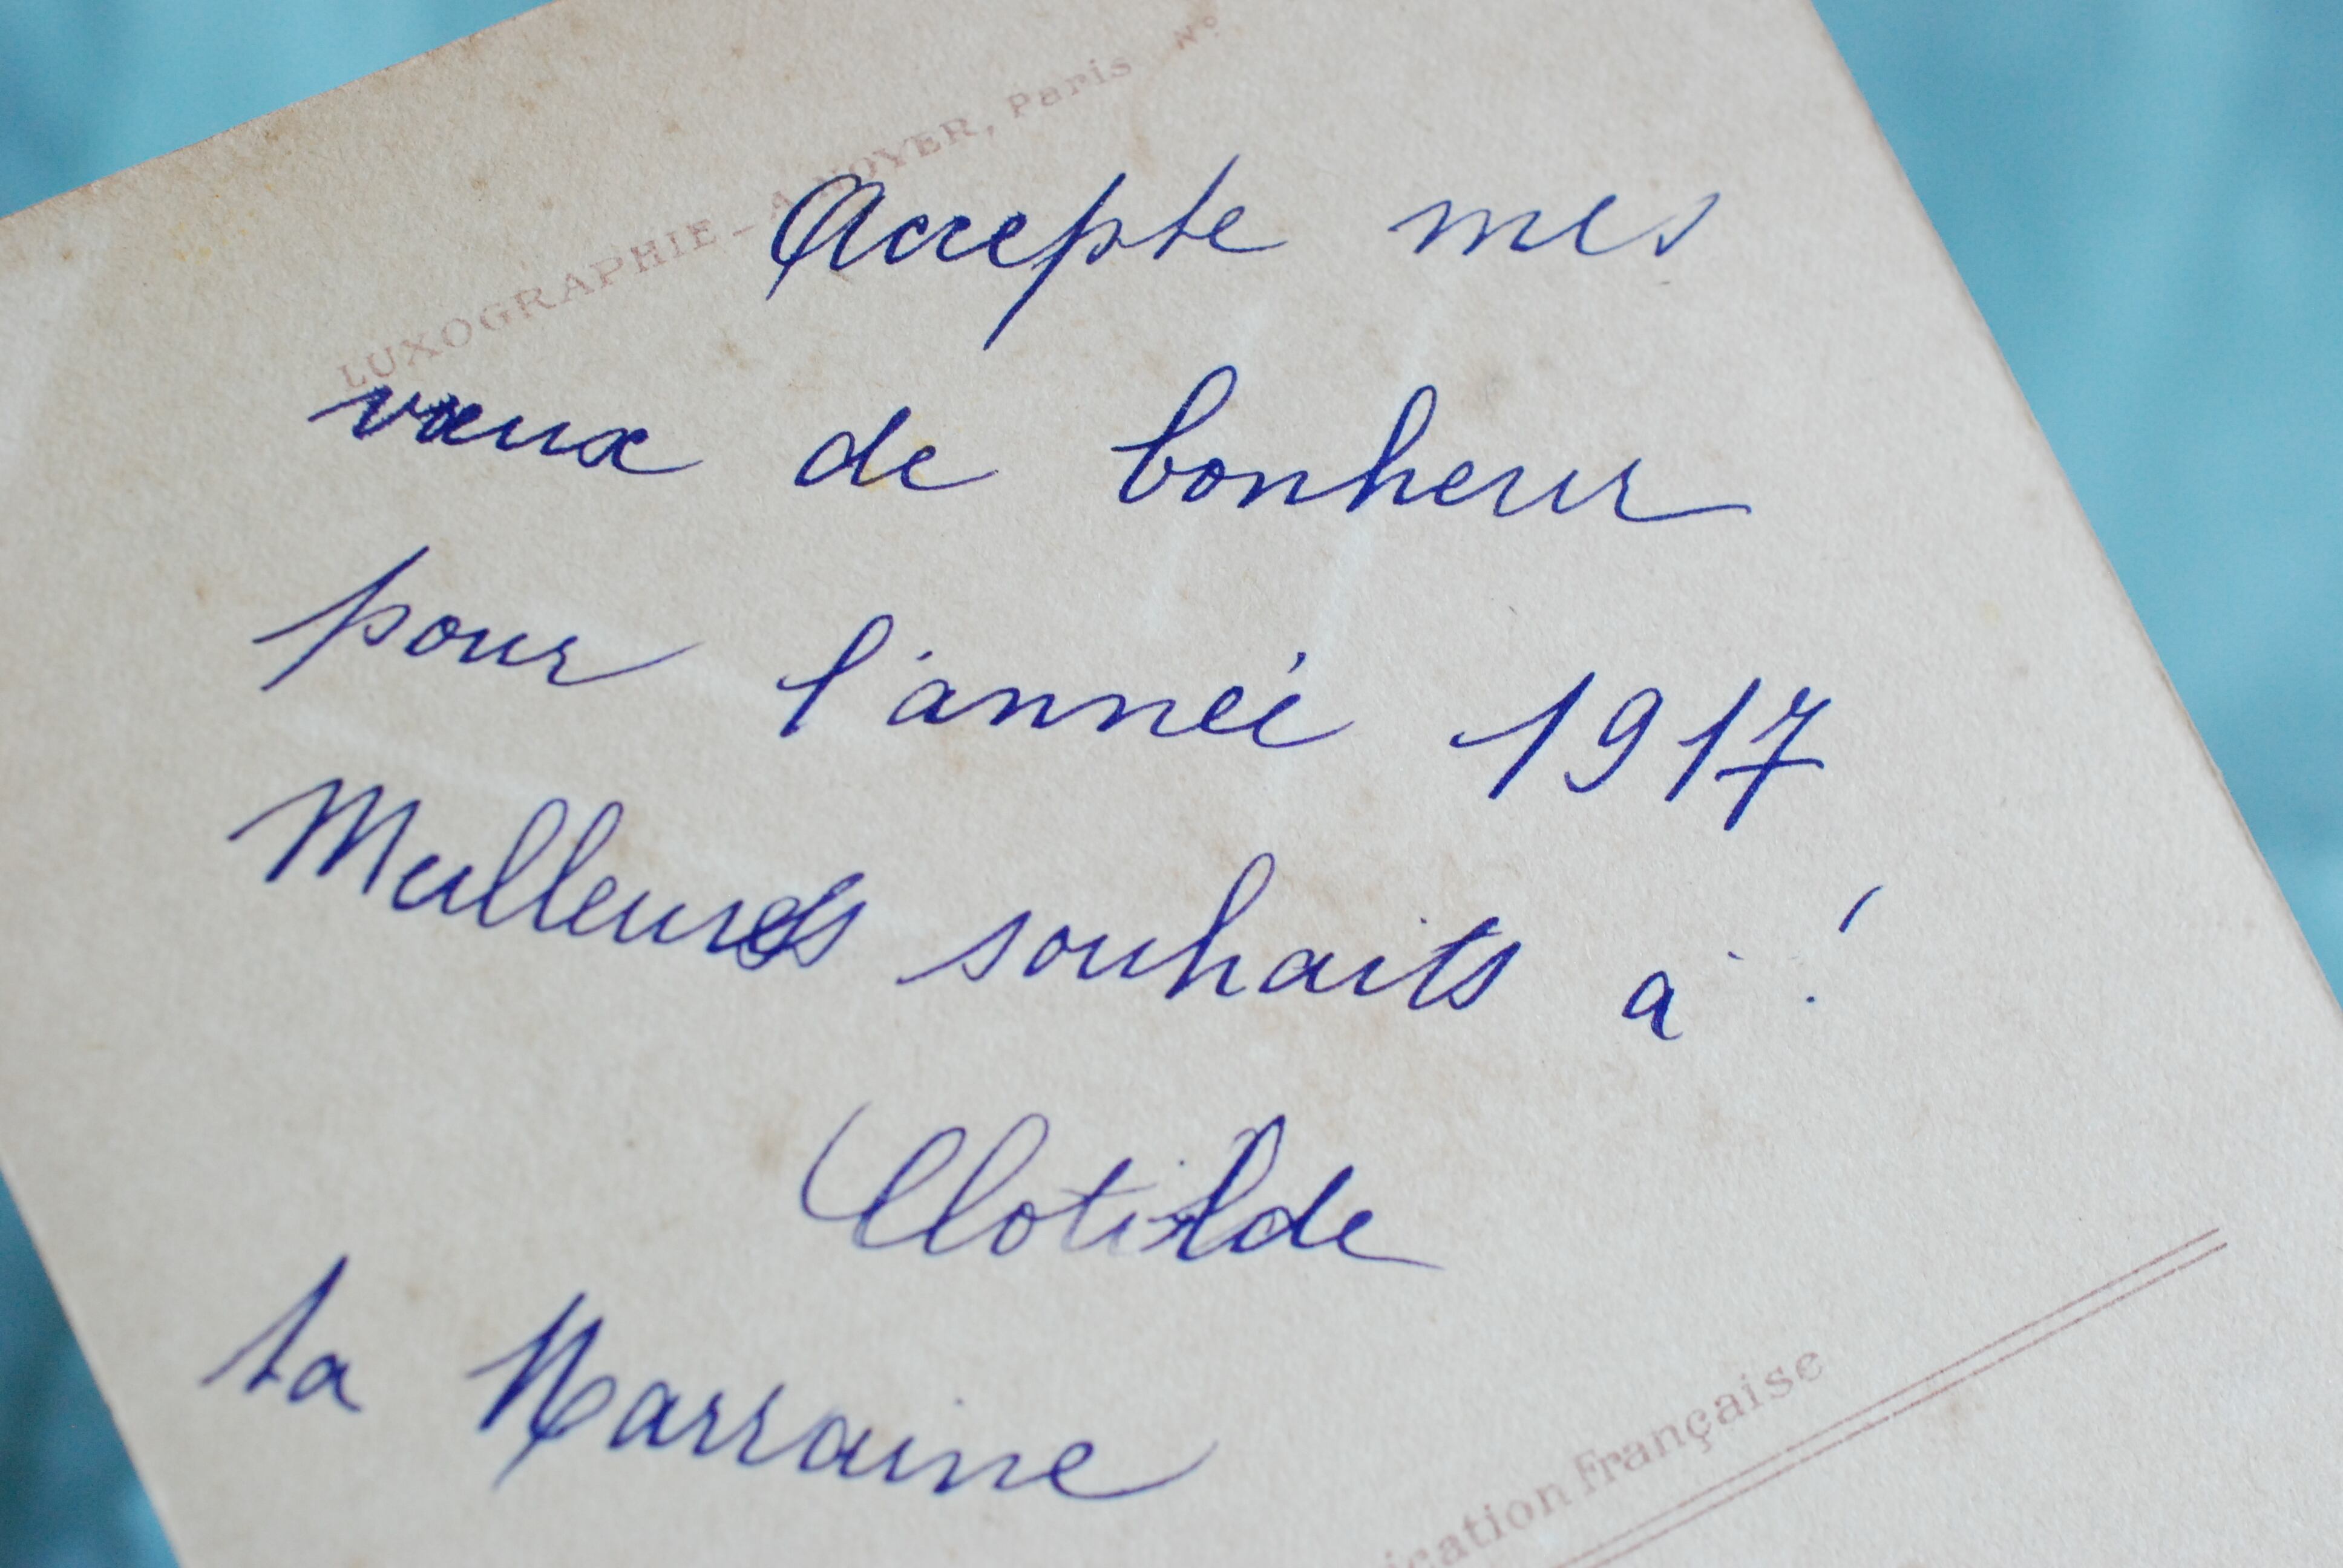 LUXOGRAPHIE - A. NOYER, Paris N°
Accepte mes
vœux de bonheur
pour l'année 1917
Meilleurs souhaits à !
Clotilde
ta Marraine
ication Française